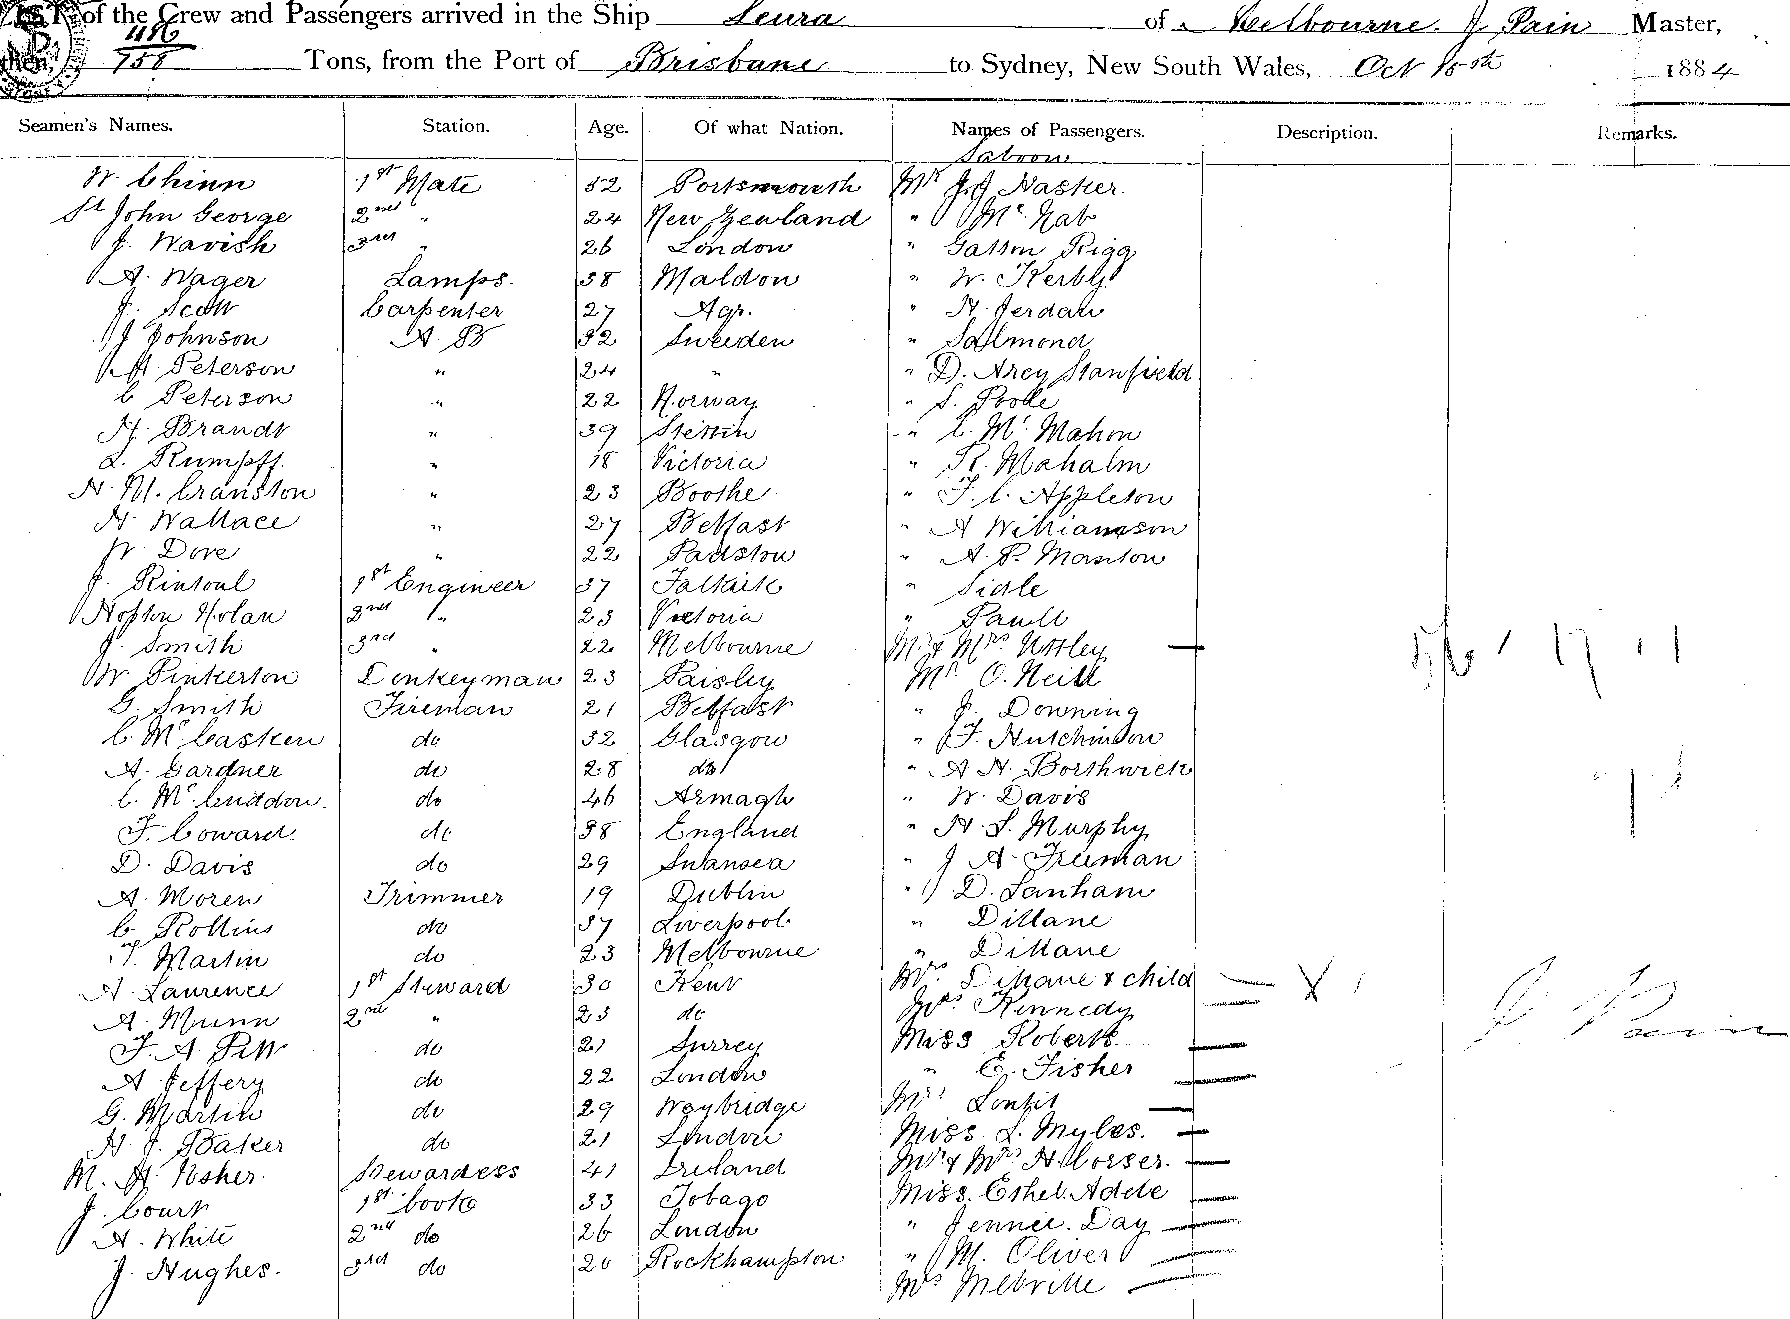 LIST of the Crew and Passengers arrived in the Ship Leura of Melbourne. J Pain Master,
758 Tons, from the Port of Brisbane to Sydney, New South Wales, Oct 15th 1884
Seamen's Names. Station. Age. Of what Nation. Names of Passengers. Description. Remarks.
Saloon
W Chinn 1st Mate 32 Portsmouth Mr J.J Nasker.
St John George 2nd " 24 New Zealand " Mc Nab
J. Wavish 3rd " 26 London " Gatson Rigg
A. Wager Lamps. 38 Maldon " W. Kerby
J. Scott Carpenter 27 Agr. " H. Jerdan
J Johnson A. B 32 Sweden " Salmond
A. Peterson " 24 " " D. Arcy Stanfield
C Peterson " 22 Norway " S. Poole
H. Brandt " 39 Stettin " C. Mc Mahon
L. Rumpff. " 18 Victoria " R. Mahalm
H. M. Cranston " 23 Boothe " F. C. Appleton
H. Wallace " 27 Belfast " A Williamson
W. Dove " 22 Padstow " A. P. Manton
J. Rintoul 1st Engineer 37 Falkirk " Sidle
Hopton Nolan 2nd " 23 Victoria " Paull
J. Smith 3rd " 22 Melbourne Mr & Mrs Uttley
W Pinkerton Donkeyman 23 Paisley Mr O. Neill
G. Smith Fireman 21 Belfast " J. Downing
C. Mc Casken do 32 Glasgow " F. Hutchinson
A. Gardner do 28 do " A H. Borthwick
C. Mc Cuddon. do 46 Armagh " W. Davis
F. Coward. do 38 England " H. S. Murphy
D. Davis do 29 Swansea " J A. Freeman
A. Moren Trimmer 19 Dublin " D. Lanham
C. Rollins do 37 Liverpool " Dillane
T. Martin do 23 Melbourne " Dillane
A. Laurence 1st Steward 30 Kent Mrs Dillane & child
A. Munn 2nd " 23 do Mrs Kennedy
F. A. Pitt do 21 Surrey Miss Roberts
A Jeffery do 22 London " E. Fisher
G. Martin do 29 Waybridge Mrs
H. J. Baker do 21 London Miss L. Myles.
M. A. Usher. Stewardess 41 Ireland Mr & Mrs H Corser.
J. Court 1st Cook 33 Tobago Miss. Ethel. Adele
A. White 2nd do 26 London " Jennie. Day
J. Hughes. 3rd do 20 Rockhampton " M. Oliver
Mrs Melville
J. Pain